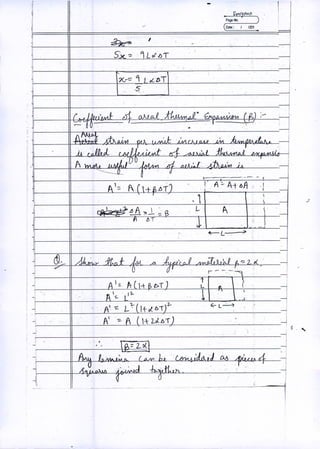 Page No.
Date: / /20
5x = 9LαΔT
x = 9 LαΔT
5
Coefficient of areal thermal Expansion (β) :-
Areal strain per unit increase in temperature
is called coefficient of aerial thermal expansion
A more useful form of aerial strain is
A' = A (1+βΔT)
A' = A+ΔA
ΔA × 1 = β
A ΔT
L
A
L
Q. Show that for a typical material β=2α.
A' = A(1+βΔT)
A' = L'²
A' = L²(1+αΔT)²
A' = A (1+2αΔT)
L
A
L
∴ β=2α
Any lamina can be considered as pieces of
squares joined together.